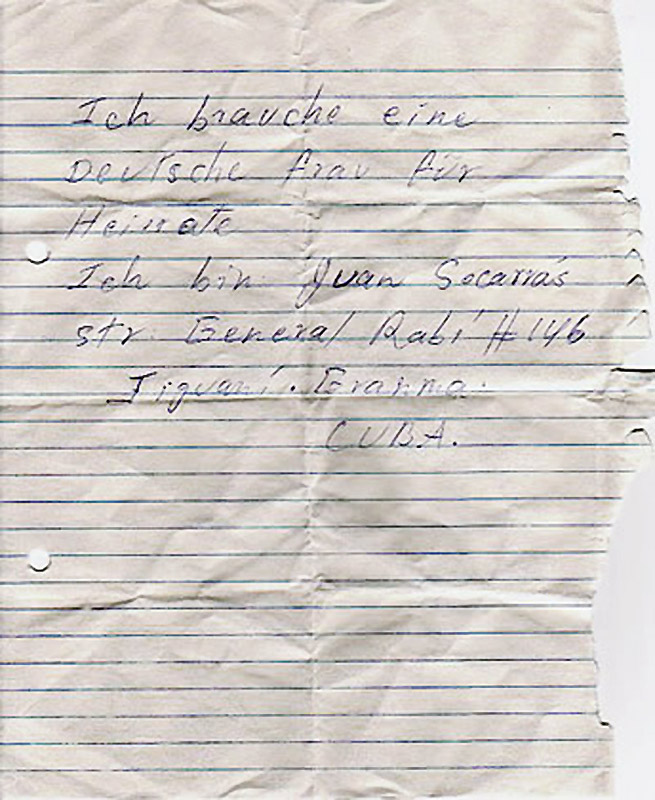 Ich brauche eine
Deutsche frau für
Heirate
Ich bin Juan Socarrás
str. General Rabí # 146
Jiguaní. Granma.
CUBA.